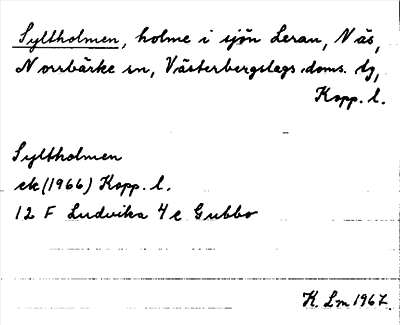 Syltholmen, holme i sjön Leran, Näs,
Norrbärke sn, Västerbergslags doms. tg,
Kopp. l.
Syltholmen
ek (1966) Kopp. l.
12 F Ludvika 4 c Gubbo
K. Lm 1967.